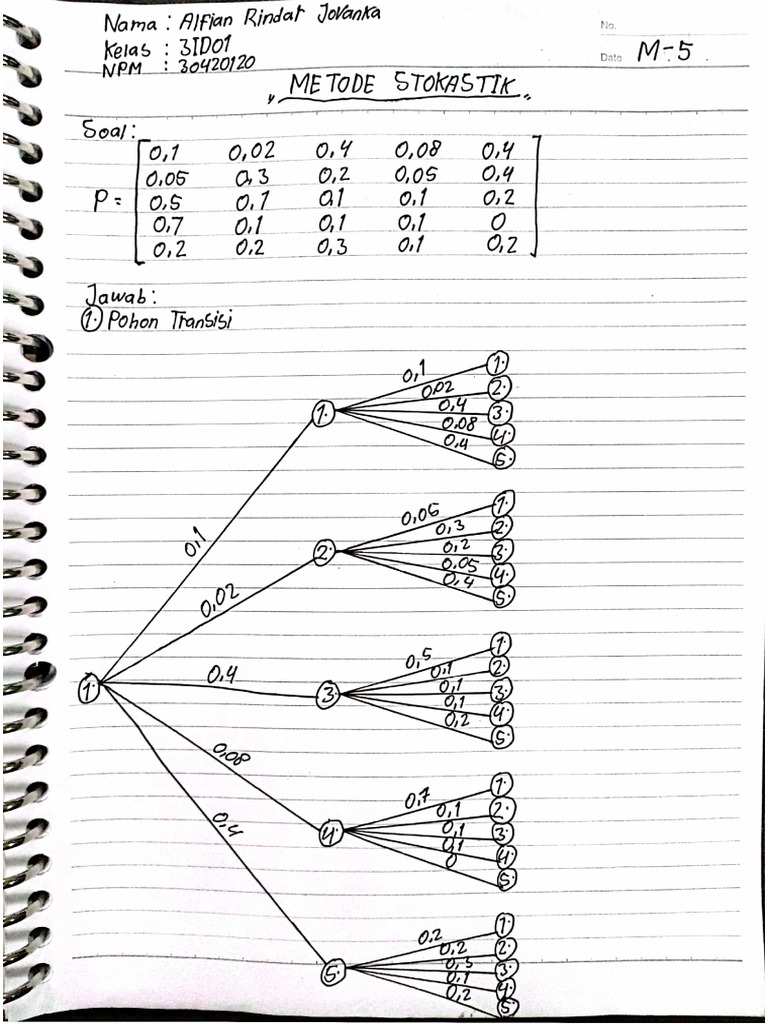 Nama : Alfian Rindat Jovanka
No.
Kelas : 3ID01
Date M-5
NPM : 30420120
" METODE STOKASTIK "
Soal:
P = [ 0,1 0,02 0,4 0,08 0,4
0,05 0,3 0,2 0,05 0,4
0,5 0,1 0,1 0,1 0,2
0,7 0,1 0,1 0,1 0
0,2 0,2 0,3 0,1 0,2 ]
Jawab:
1. Pohon Transisi
0,1 1.
0,02 2.
1. 0,4 3.
0,08 4.
0,4 5.
0,1
0,05 1.
0,3 2.
2. 0,2 3.
0,05 4.
0,4 5.
0,02
0,5 1.
0,1 2.
1. 0,4 3. 0,1 3.
0,1 4.
0,2 5.
0,08
0,7 1.
0,1 2.
4. 0,1 3.
0,1 4.
0 5.
0,4
0,2 1.
0,2 2.
5. 0,3 3.
0,1 4.
0,2 5.